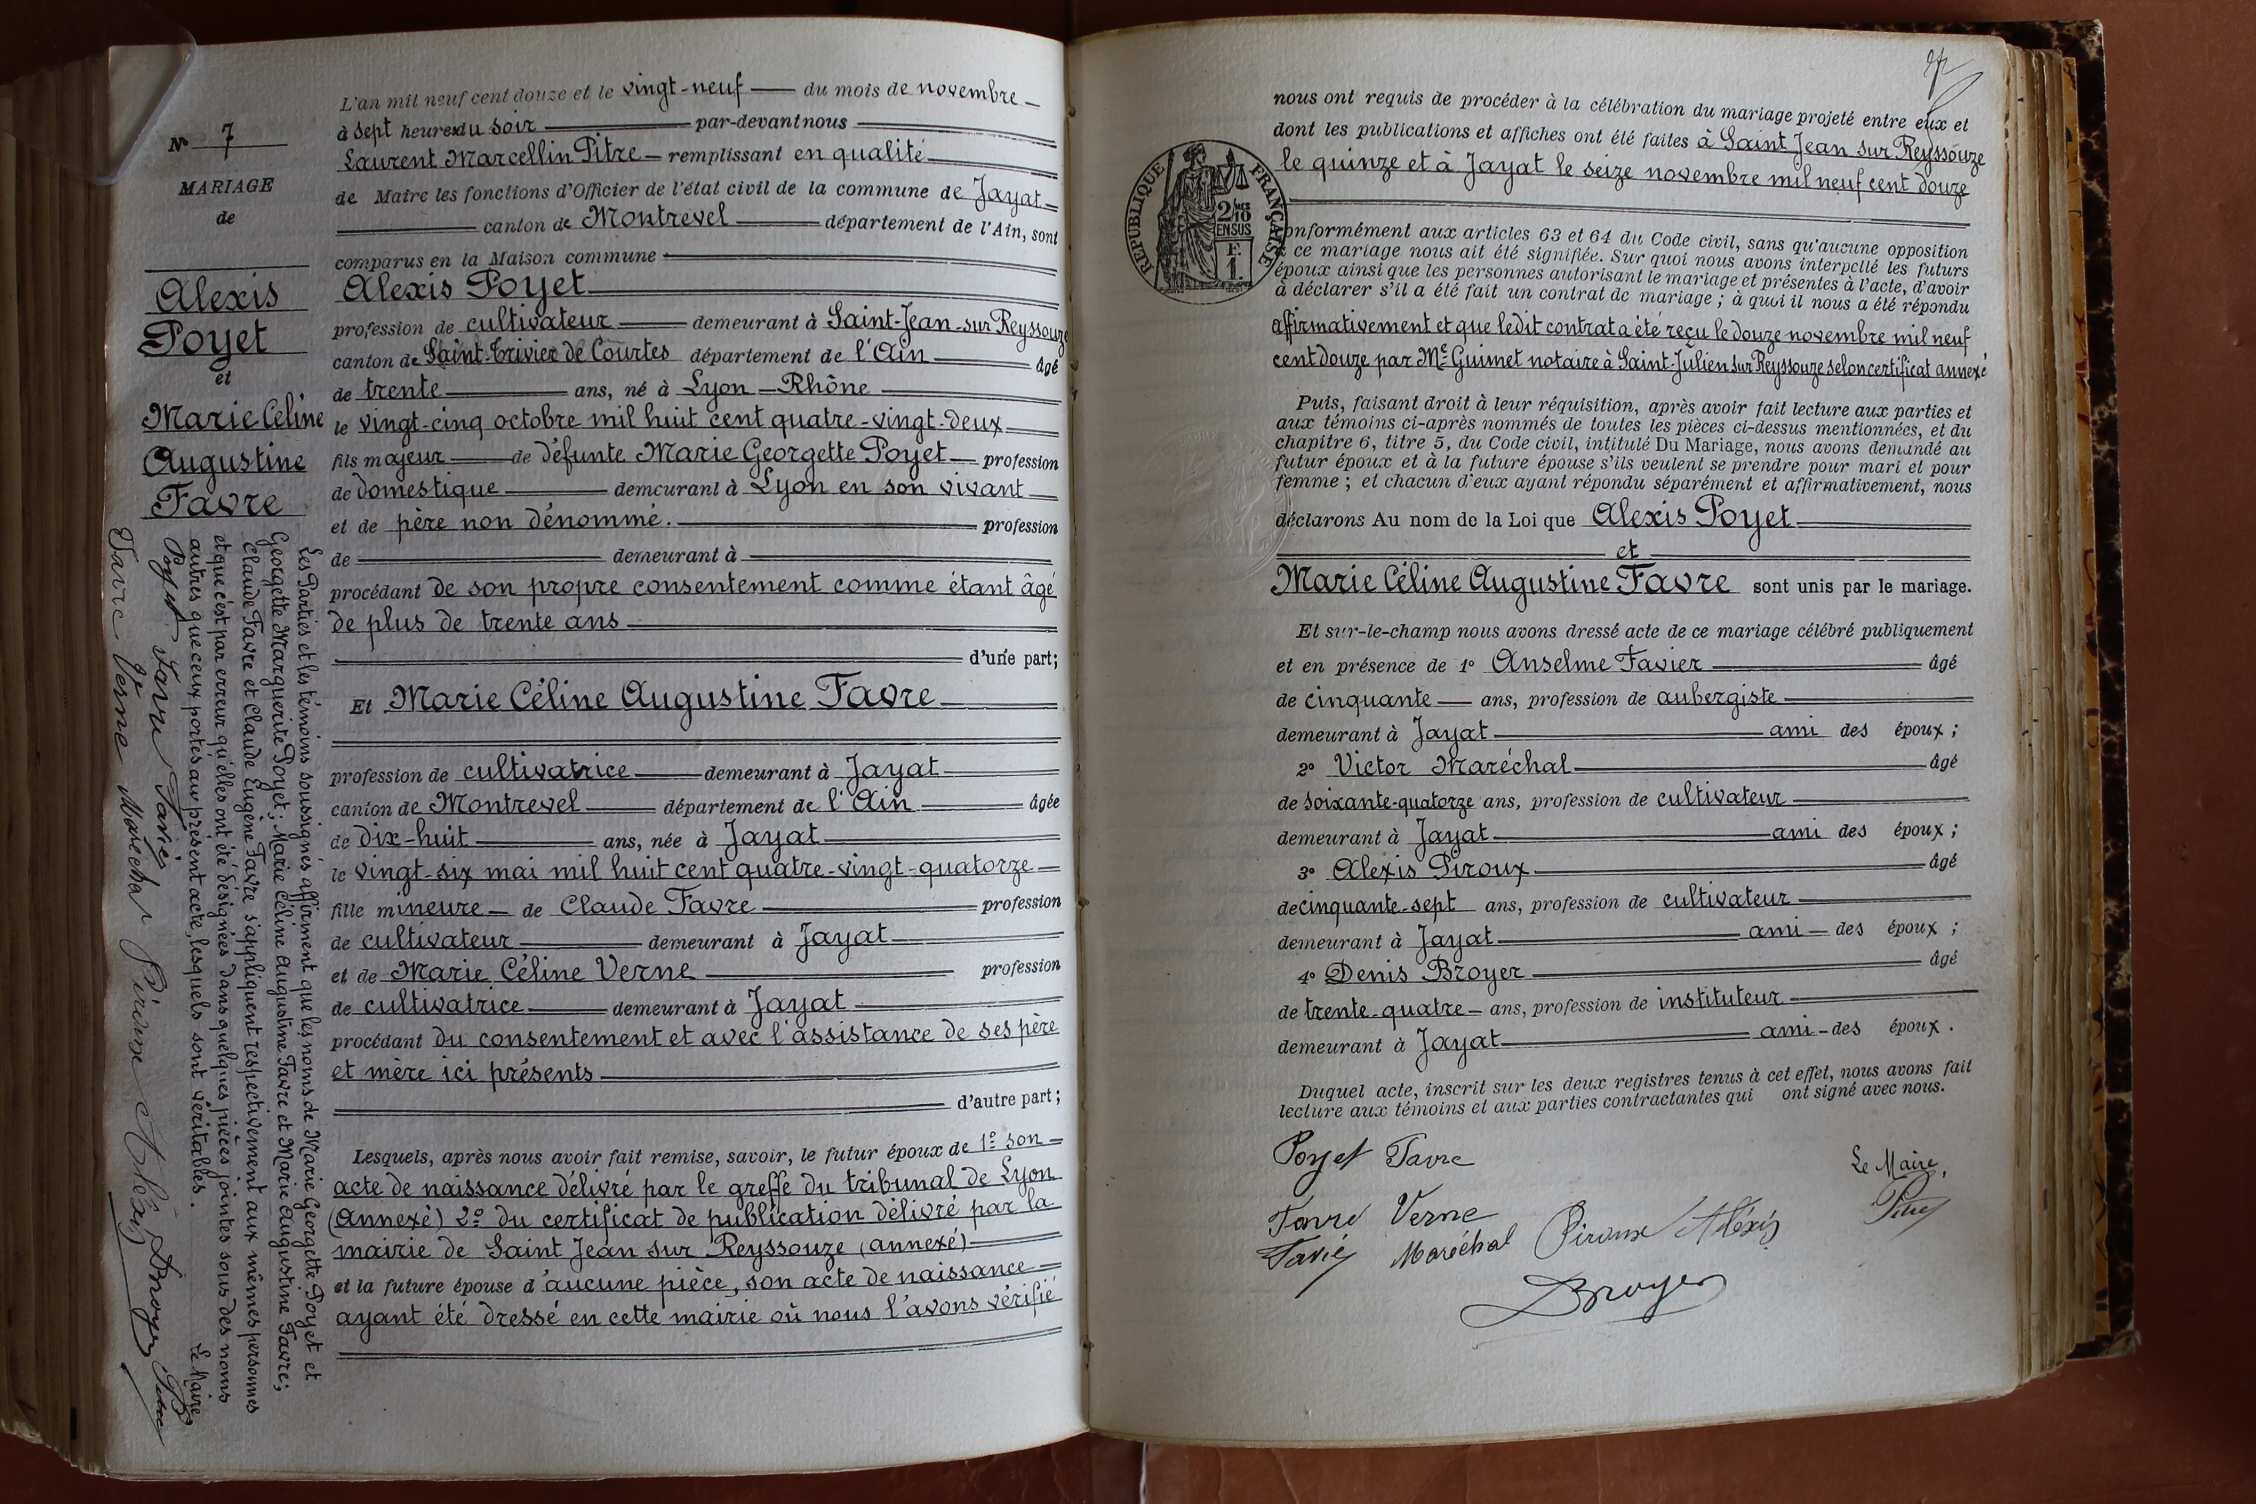 N° 7
MARIAGE
de
Alexis
Poyet
et
Marie Céline
Augustine
Favre
Les Parties et les témoins soussignés affirment que les noms de Marie Georgette Poyet et
Georgette Marguerite Poyet; Marie Céline Augustine Favre et Marie Augustine Favre;
Claude Favre et Claude Eugène Favre s'appliquent respectivement aux mêmes personnes
et que c'est par erreur qu'elles ont été désignées dans quelques pièces jointes sous des noms
autres que ceux portés au présent acte, lesquels sont véritables.
Le Maire
Poyet Favre Favié
Favre Verne Maréchal Piroux Alexis Broyer Pitre
L'an mil neuf cent douze et le vingt-neuf du mois de novembre
à sept heures du soir par-devant nous
Laurent Marcellin Pitre remplissant en qualité
de Maire les fonctions d'Officier de l'état civil de la commune de Jayat
canton de Montrevel département de l'Ain, sont
comparus en la Maison commune
Alexis Poyet
profession de cultivateur demeurant à Saint-Jean-sur-Reyssouze
canton de Saint-Trivier de Courtes département de l'Ain âgé
de trente ans, né à Lyon - Rhône
le vingt-cinq octobre mil huit cent quatre-vingt-deux
fils majeur de défunte Marie Georgette Poyet profession
de domestique demeurant à Lyon en son vivant
et de père non dénommé. profession
de demeurant à
procédant de son propre consentement comme étant âgé
de plus de trente ans
d'une part;
Et Marie Céline Augustine Favre
profession de cultivatrice demeurant à Jayat
canton de Montrevel département de l'Ain âgée
de dix-huit ans, née à Jayat
le vingt-six mai mil huit cent quatre-vingt-quatorze
fille mineure de Claude Favre profession
de cultivateur demeurant à Jayat
et de Marie Céline Verne profession
de cultivatrice demeurant à Jayat
procédant du consentement et avec l'assistance de ses père
et mère ici présents
d'autre part;
Lesquels, après nous avoir fait remise, savoir, le futur époux de 1° son
acte de naissance délivré par le greffe du tribunal de Lyon
(annexé) 2° du certificat de publication délivré par la
mairie de Saint Jean sur Reyssouze (annexé)
et la future épouse d'aucune pièce, son acte de naissance
ayant été dressé en cette mairie où nous l'avons vérifié
nous ont requis de procéder à la célébration du mariage projeté entre eux et
dont les publications et affiches ont été faites à Saint Jean sur Reyssouze
le quinze et à Jayat le seize novembre mil neuf cent douze
RÉPUBLIQUE FRANÇAISE
2/10
EN SUS
F.
1.
onformément aux articles 63 et 64 du Code civil, sans qu'aucune opposition
à ce mariage nous ait été signifiée. Sur quoi nous avons interpellé les futurs
époux ainsi que les personnes autorisant le mariage et présentes à l'acte, d'avoir
à déclarer s'il a été fait un contrat de mariage; à quoi il nous a été répondu
affirmativement et que ledit contrat a été reçu le douze novembre mil neuf
cent douze par Me Guimet notaire à Saint-Julien sur Reyssouze selon certificat annexé
Puis, faisant droit à leur réquisition, après avoir fait lecture aux parties et
aux témoins ci-après nommés de toutes les pièces ci-dessus mentionnées, et du
chapitre 6, titre 5, du Code civil, intitulé Du Mariage, nous avons demandé au
futur époux et à la future épouse s'ils veulent se prendre pour mari et pour
femme; et chacun d'eux ayant répondu séparément et affirmativement, nous
déclarons Au nom de la Loi que Alexis Poyet
et
Marie Céline Augustine Favre sont unis par le mariage.
Et sur-le-champ nous avons dressé acte de ce mariage célébré publiquement
et en présence de 1° Anselme Favier âgé
de cinquante ans, profession de aubergiste
demeurant à Jayat ami des époux;
2° Victor Maréchal âgé
de soixante-quatorze ans, profession de cultivateur
demeurant à Jayat ami des époux;
3° Alexis Piroux âgé
de cinquante-sept ans, profession de cultivateur
demeurant à Jayat ami des époux;
4° Denis Broyer âgé
de trente-quatre ans, profession de instituteur
demeurant à Jayat ami des époux.
Duquel acte, inscrit sur les deux registres tenus à cet effet, nous avons fait
lecture aux témoins et aux parties contractantes qui ont signé avec nous.
Poyet Favre
Le Maire,
Favre Verne
Pitre
Favié Maréchal Piroux Aléxis
Broyer